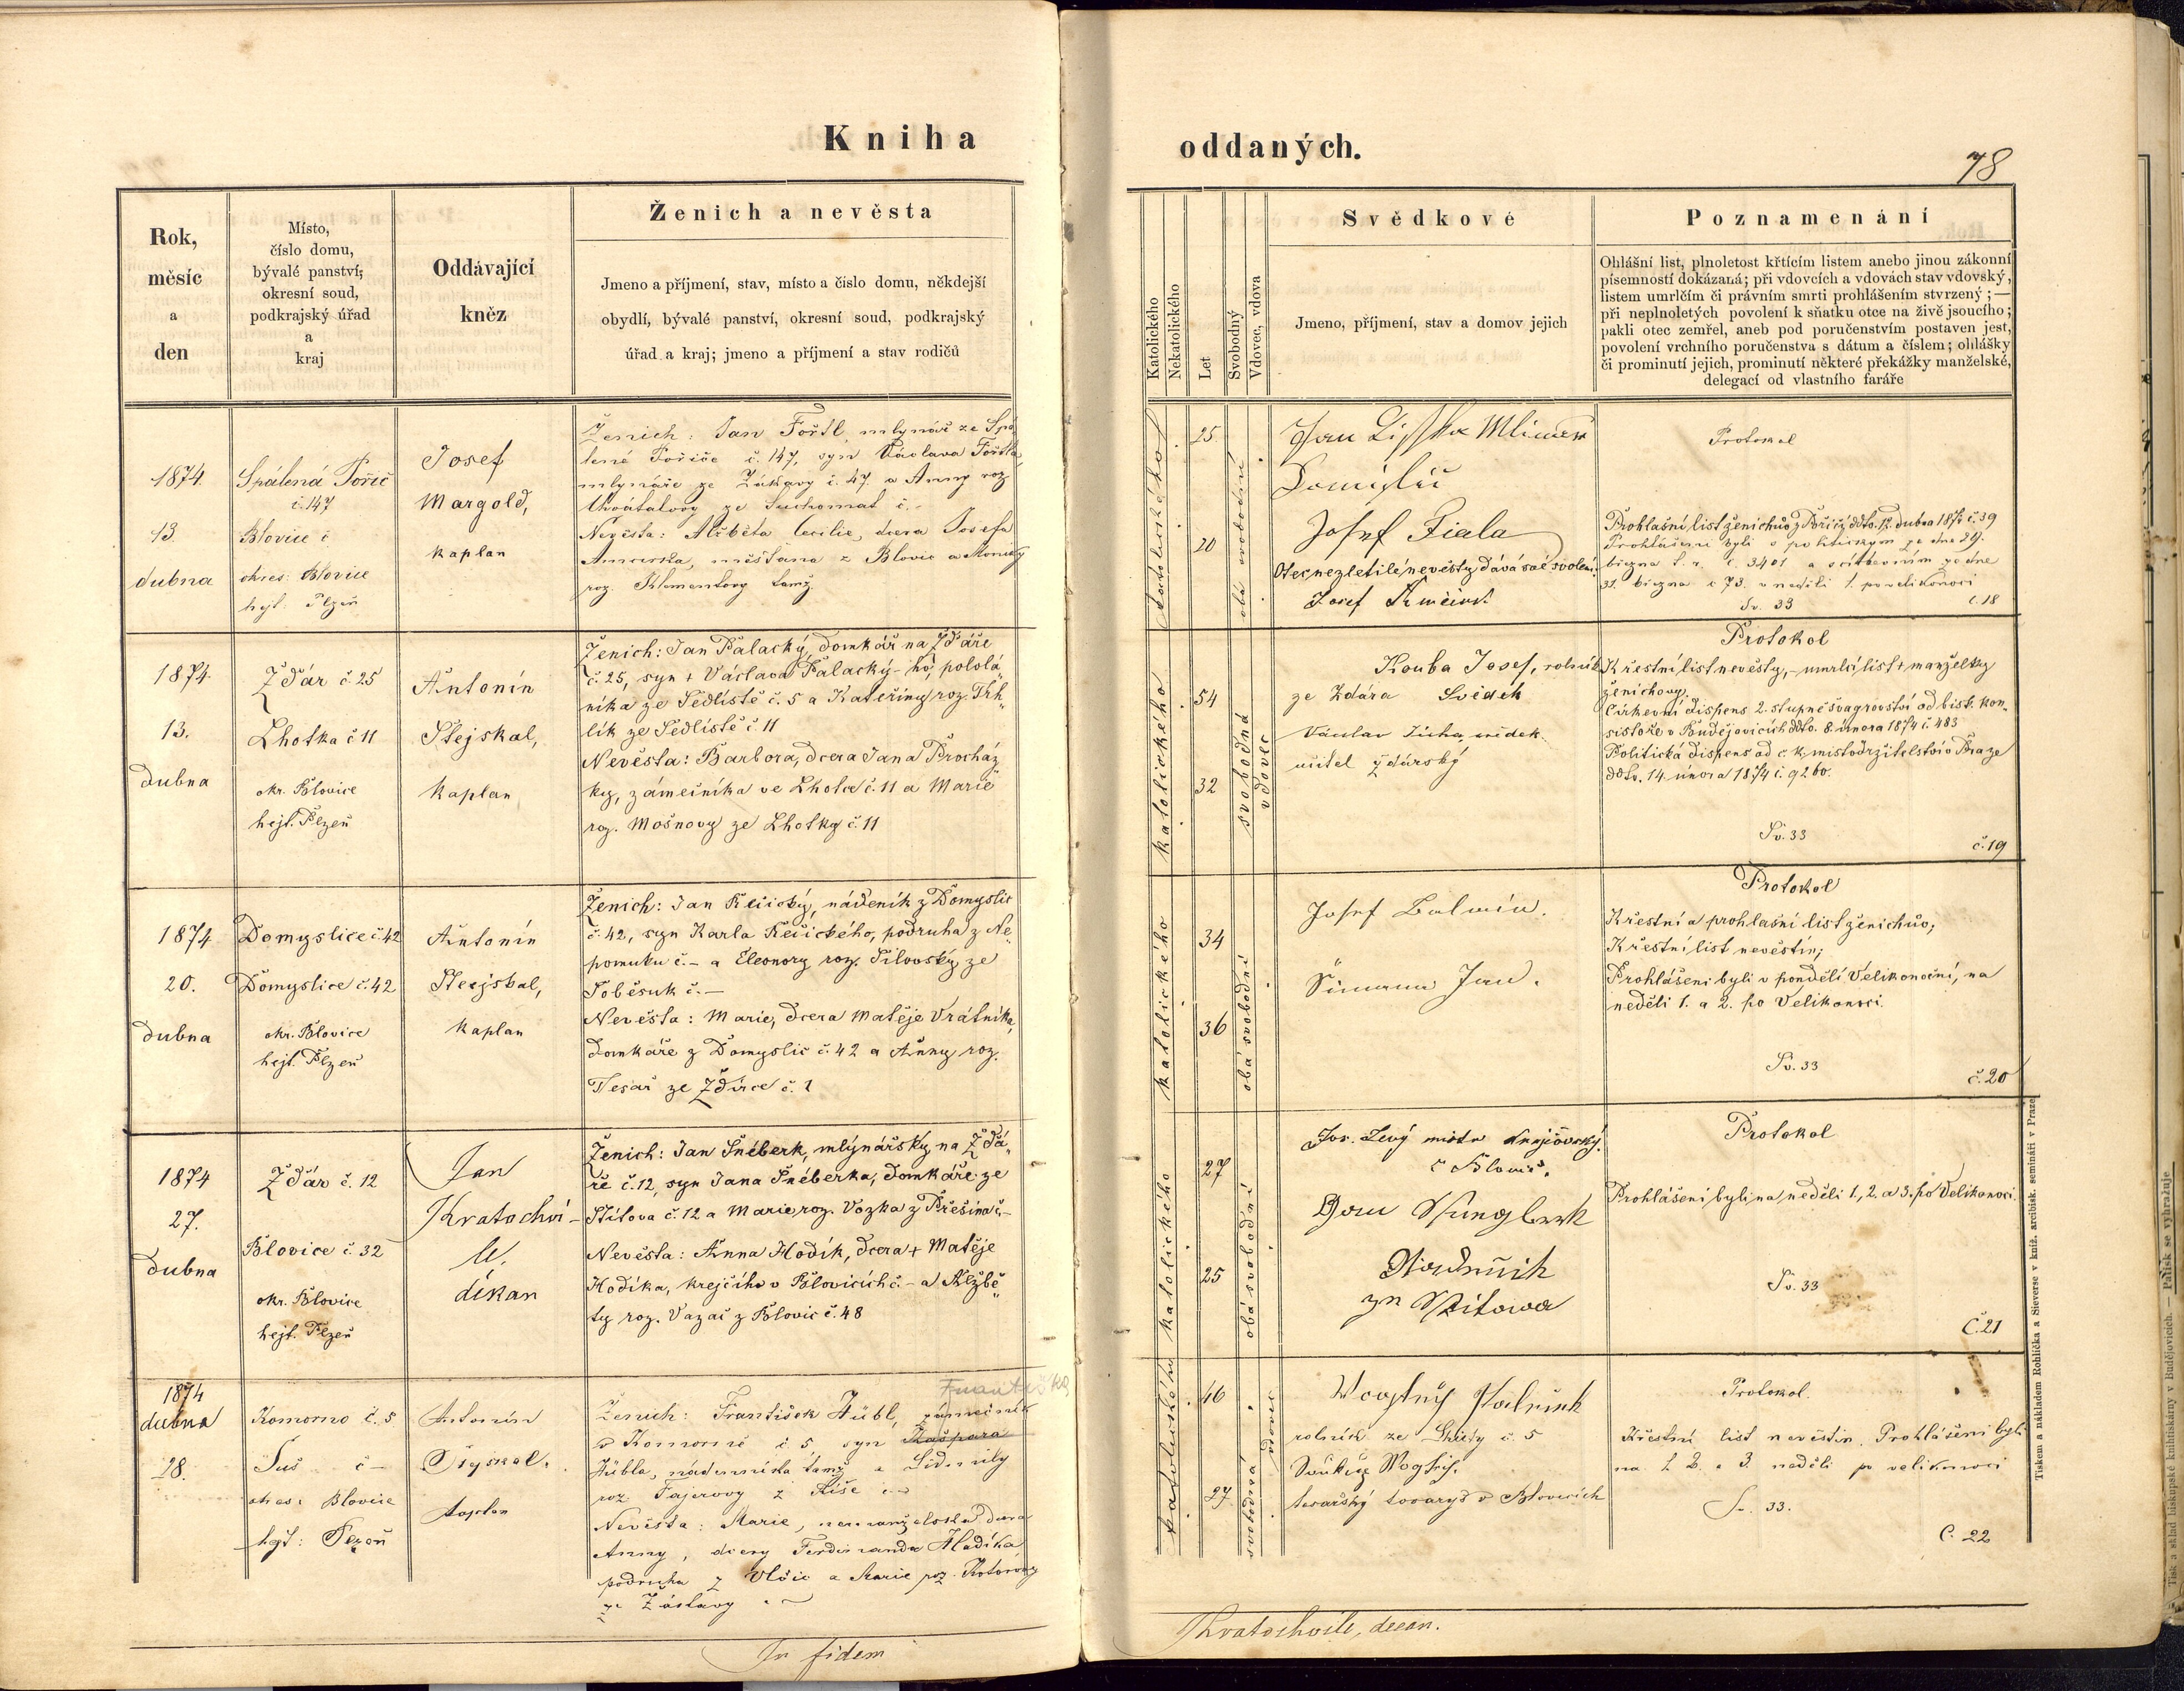 Kniha
Rok,
měsíc
a
den
Místo,
číslo domu,
bývalé panství;
okresní soud,
podkrajský úřad
a
kraj
Oddávající
kněz
Ženich a nevěsta
Jmeno a příjmení, stav, místo a čislo domu, někdejší
obydlí, bývalé panství, okresní soud, podkrajský
úřad a kraj; jmeno a příjmení a stav rodičů
1874.
13.
dubna
Spálená Pořič
č. 147
Blovice č
okres: Blovice
hejt: Plzeň
Josef
Margold,
kaplan
Ženich: Jan Förstl, mlynář ze Spá
lené Pořiče č. 147, syn Václava Förstla
mlynáře ze Zákavy č. 47 a Anny roz
ze Suchomast č.-
Nevěsta: Alžběta Cecilie, dcera Josefa
měšťana z Blovic a Moniky
roz. Klementovy tamž.
1874.
13.
dubna
Ždár č 25
Lhotka č 11
okr. Blovice
hejt. Plzeň
Antonín
Stejskal,
kaplan
Ženich: Jan Palacký, domkář na Ždáře
č. 25, syn + Václava Palacký-ho, pololá„
níka ze Sedliště č. 5 a Kateřiny roz. Trh„
lík ze Sedliště č 11
Nevěsta: Barbora, dcera Jana Procház
ky, zámečníka ve Lhotce č. 11 a Marie
roz. Mošnovy ze Lhotky č. 11
1874
20.
dubna
Domyslice č. 42
Domyslice č. 42
okr. Blovice
hejt. Plzeň
Antonín
Stejskal,
kaplan
Ženich: Jan Řečický, nádeník z Domyslic
č. 42, syn Karla Řečického, podruha z Ne„
pomuku č.- a Eleonory roz. Šilovský ze
Soběsuk č.-
Nevěsta: Marie, dcera Matěje Vrátníka,
domkáře z Domyslic č. 42 a Anny roz.
Tesař ze Zdírce č. 1
1874
27.
dubna
Ždár č. 12
Blovice č. 32
okr. Blovice
hejt. Plzeň
Jan
Kratochví-
le,
děkan
Ženich: Jan Šnéberk, mlýnářský na Ždá„
ře č. 12, syn Jana Šnéberka, domkáře ze
Štítova č. 12 a Marie roz. Vozka z Přešína č-
Nevěsta: Anna Hodík, dcera + Matěje
Hodíka, krejčího v Blovicích č.- a Alžbě„
ty roz. Vazač z Blovic č. 48
1874
dubna
28.
Komorno č. 5
č-
okres: Blovice
hejt: Plzeň
Antonín
kaplan
Františka
Ženich: František Hübl, zámečník
v Komorně č 5 syn Kašpara
Hübla, nádenníka tamž a Lidmily
roz. Fajerovy z
Nevěsta: Marie, nemanželská dcera
Anny, dcery Ferdinanda Hladíka
podruha z Vlčic a Marie roz.
ze Zástavy
In fidem
oddaných.
78
Katolického
Nekatolického
Let
Svobodný
Vdovec, vdova
Svědkové
Jmeno, příjmení, stav a domov jejich
Poznamenání
Ohlášní list, plnoletost křtícím listem anebo jinou zákonní
písemností dokázaná; při vdovcích a vdovách stav vdovský,
listem umrlčím či právním smrti prohlášením stvrzený;—
při neplnoletých povolení k sňatku otce na živě jsoucího;
pakli otec zemřel, aneb pod poručenstvím postaven jest,
povolení vrchního poručenstva s dátum a číslem; ohlášky
či prominutí jejich, prominutí některé překážky manželské,
delegací od vlastního faráře
katolického
25
20
obá svobodní
Josef Fiala
Otec nezletilé nevěsty dává své svolení.
Josef
Protokol
Prohlašní list ženichův z Pořičí ddto. 12. dubna 1874 č. 39
Prohlášeni byli s politickým ze dne 29.
března t. r. č. 3401 a ze dne
31. března č 73. v neděli 1. po velikonoci
Sv. 33
č. 18
katolického
54
32
svobodná
vdovec
Kouba Josef, rolník
ze Zdára Svědek
Václav svědek.
učitel ždárský
Protokol
Křestní list nevěsty, - umrlčí list + manželky
ženichovy.
Církevní dispens 2. stupně švagrovství od bisk. kon„
sistoře v Budějovicích ddto. 8. února 1874 č. 483
Politická dispens od c. k. místodržitelství v Praze
ddto. 14. února 1874 č. 9260.
Sv. 33
č. 19
katolického
34
36
obá svobodní
Josef
Šimana Jan.
Protokol
Křestní a prohlašní list ženichův;
Křestní list nevěstin;
Prohlášeni byli v pondělí Velikonoční, na
neděli 1. a 2. po Velikonoci.
Sv. 33
č. 20
katolického
27
25
obá svobodní
Jos. Levý mistr krejčovský
z Blovic.
Protokol
Prohlášeni byli na neděli 1., 2. a 3. po Velikonoci.
Sv. 33
Č. 21
katolického
46
27
vdovec
svobodná
rolník ze č. 5
tesařský tovaryš v Blovicích
Protokol.
Křestní list nevěstin. Prohlášeni byli
na 1. 2. a 3. neděli po velikonoci
Sv. 33.
Č. 22
Kratochvile, decan.
Tiskem a nákladem Rohlíčka a Sieverse v kníž. arcibisk. semináři v Praze
Tisk a sklad biskupské knihtiskárny v Budějovicích. — Patisk se vyhražuje